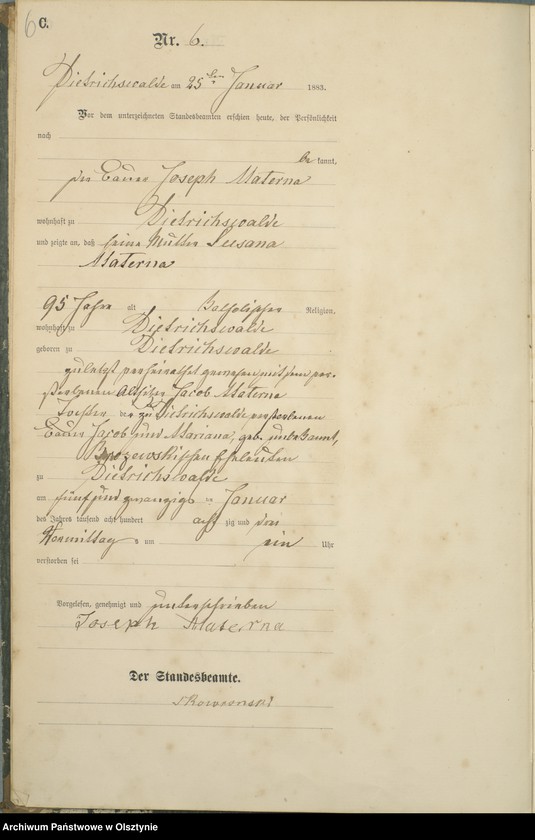 6 C.
Nr. 6.
Dietrichswalde am 25ten Januar 1883.
Vor dem unterzeichneten Standesbeamten erschien heute, der Persönlichkeit
nach
be kannt,
der Bauer Joseph Materna
wohnhaft zu Dietrichswalde
und zeigte an, daß seine Mutter Susana
Materna
95 Jahre alt Katholischer Religion,
wohnhaft zu Dietrichswalde
geboren zu Dietrichswalde
zuletzt verheirathet gewesen mit dem ver-
storbenen Altsitzer Jacob Materna
Tochter der zu Dietrichswalde verstorbenen
Bauer Jacob und Mariana, geb. unbekannt,
Eheleuten
zu Dietrichswalde
am fünf und zwanzigsten Januar
des Jahres tausend acht hundert acht zig und drei
Vormittags um ein Uhr
verstorben sei
Vorgelesen, genehmigt und unterschrieben
Joseph Materna
Der Standesbeamte.
Archiwum Państwowe w Olsztynie